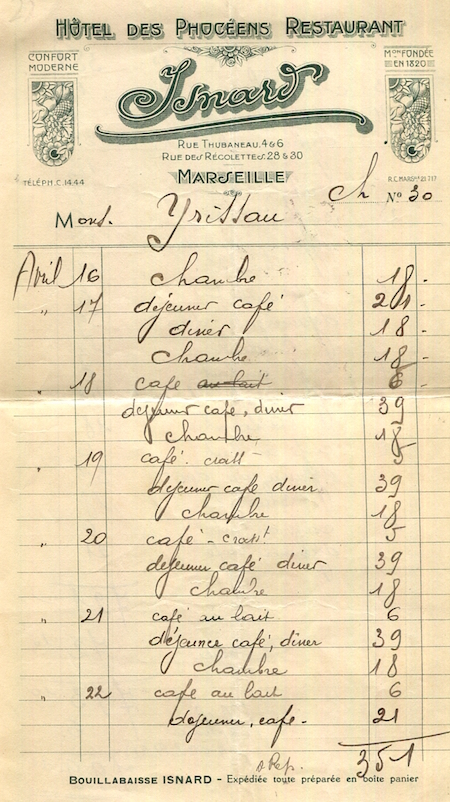 HÔTEL DES PHOCÉENS RESTAURANT
CONFORT MODERNE
Isnard
MON FONDÉE EN 1820
RUE THUBANEAU, 4 & 6
RUE DES RÉCOLETTES, 28 & 30
TÉLÉPH. C. 14.44
MARSEILLE
R.C. MARSLLE 21.717
Ch No 30
Mons. Yrissau
Avril 16 chambre 18 -
" 17 déjeuner café 21 -
diner 18 -
chambre 18 -
" 18 cafe au lait 6 -
dejeuner cafe, diner 39
chambre 18
" 19 café - crasst 5
dejeuner café diner 39
chambre 18
" 20 café - crasst 5
dejeuner café diner 39
chambre 18
" 21 café au lait 6
déjeuner café, diner 39
chambre 18
" 22 cafe au lait 6
dejeuner, cafe - 21
351
BOUILLABAISSE ISNARD - Expédiée toute préparée en boîte panier